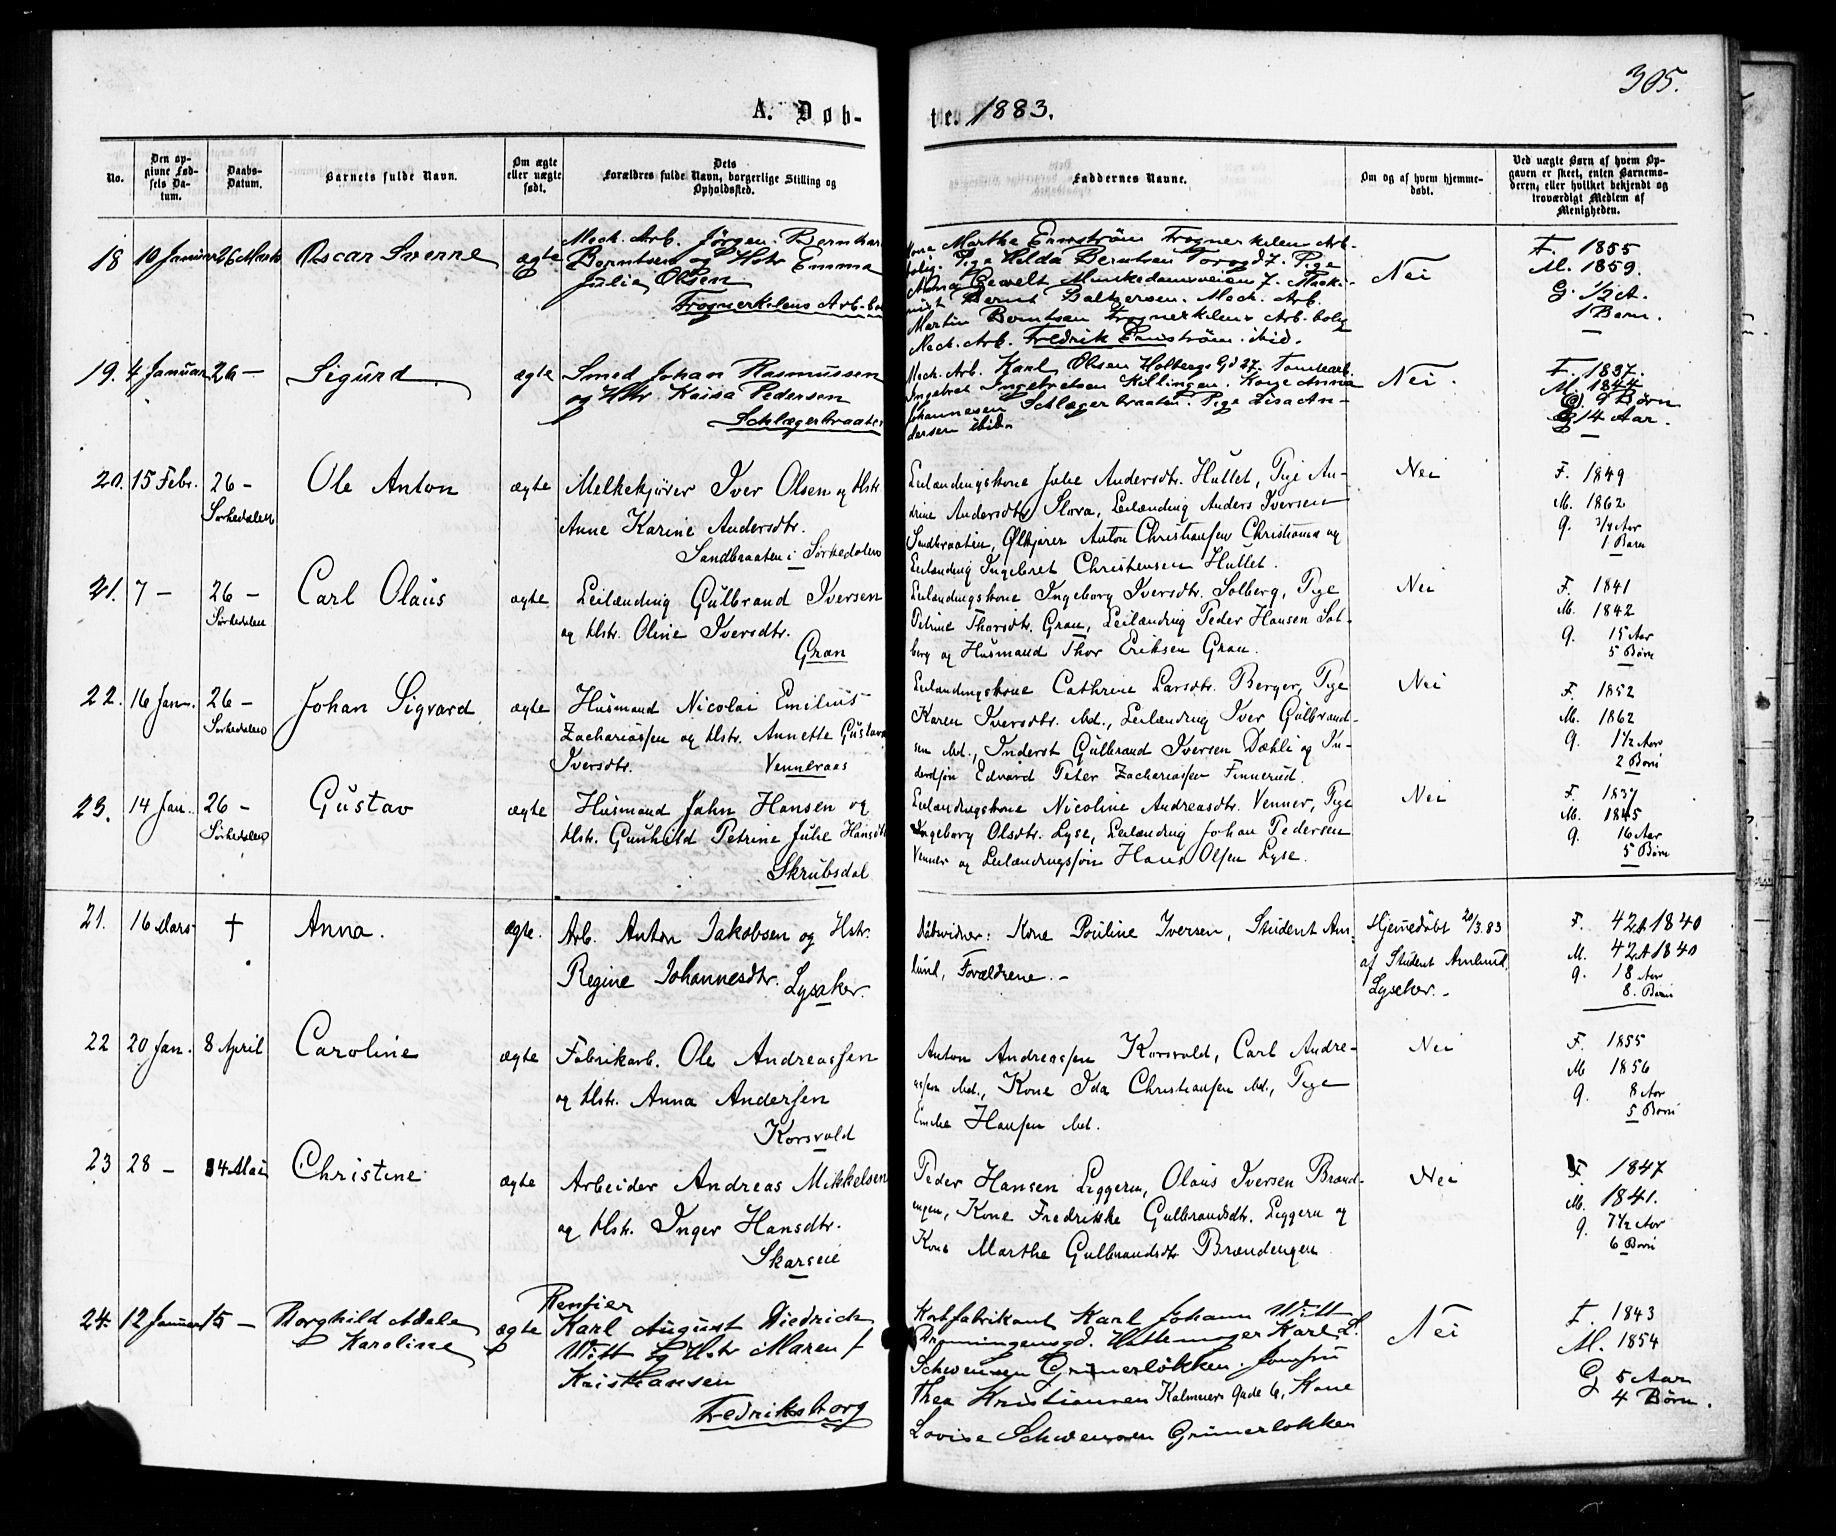 305.
A. Døb-
te. 1883.
No.
Den op-
givne Fød-
sels Da-
tum.
Daabs-
Datum.
Barnets fulde Navn.
Om ægte
eller uægte
født.
Dets
Forældres fulde Navn, borgerlige Stilling og
Opholdssted.
Faddernes Navne.
Om og af hvem hjemme-
døbt.
Ved uægte Børn af hvem Op-
gaven er skeet, enten Barnemo-
deren, eller hvilket bekjendt og
troværdigt Medlem af
Menigheden.
18 10 Januar 26 Marts Oscar Sverre ægte
Mech. Arb. Jørgen Bernhar
Berntsen og Hstr Emma
Julie Olsen
Frognerkilens Arb.-bo
Kone Marthe Ernstrøm Frognerkilen Arb-
bolig. Pige Hilda Berntsen Torvgd 7. Pige
Anna Gewelt Munkedamsveien 7. Maski-
nist Bernt Baltzersen. Mech. Arb.
Martin Berntsen Frognerkilens Arb.bolig
Mech. Arb. Fredrik Ernstrøm ibid.
Nei
F. 1855
M. 1859.
G. 1/2 A.
1 Barn.
19. 4 Januar 26 — Sigurd ægte
Smed Johan Rasmussen
og Hstr Kaisa Pedersen
Schlægerbraaten
Mech. Arb. Karl Olsen Holbergs Gd 27. Tomtearb.
Ingebret Ingebretsen Killingen. Kone Anna
Johannesen Schlægerbraaten. Pige Lisa An-
dersen ibid.
Nei.
F. 1837.
M. 1844
9 Børn
G 14 Aar.
20. 15 Febr. 26 —
Sørkedalen
Ole Anton ægte
Melkekjører Iver Olsen og Hstr
Anne Karine Andersdtr.
Sandbraaten i Sørkedalen
Leilændingskone Julie Andersdtr. Hullet, Pige An-
drine Andersdtr Slora, Leilænding Anders Iversen
Sandbraaten, Ølkjører Anton Christiansen Christiania og
Leilænding Ingebret Christensen Hullet.
Nei
F. 1849
M. 1862
g. 3/4 Aar
1 Barn
21. 7 — 26 —
Sørkedalen
Carl Olaus ægte
Leilænding Gulbrand Iversen
og Hstr. Oline Iversdtr.
Gran
Leilændingskone Ingeborg Iversdtr. Solberg, Pige
Petrine Thorsdtr. Gran, Leilænding Peder Hansen Sol-
berg og Husmand Thor Eriksen Gran.
Nei
F. 1841
M. 1842
g. 15 Aar
5 Børn
22. 16 Jan. 26 —
Sørkedalen
Johan Sigvard ægte
Husmand Nicolai Emilius
Zachariassen og Hstr. Annette Gustava
Iversdtr. Venneraas
Leilændingskone Cathrine Larsdtr. Berger, Pige
Karen Iversdtr. ibd., Leilænding Iver Gulbrand-
sen ibd., Inderst Gulbrand Iversen Dæhli og In-
derstsøn Edvard Peter Zachariassen Finnerud.
Nei
F. 1852
M. 1862
g. 1 1/2 Aar
2 Børn
23. 14 Jan. 26 —
Sørkedalen
Gustav ægte
Husmand John Hansen og
Hstr. Gunhild Petrine Julie Hansdtr
Skrubsdal
Leilændingskone Nicoline Andreasdtr. Venner, Pige
Ingeborg Olsdtr. Lyse, Leilænding Johan Pedersen
Venner og Leilændingssøn Hans Olsen Lyse.
Nei
F. 1837
M. 1845
g. 16 Aar
5 Børn
21. 16 Mars † Anna. ægte.
Arb. Anton Jakobsen og Hstr.
Regine Johannesdtr. Lysaker.
Dåbvidner: Kone Pouline Iversen, Student Am-
lund, Forældrene. —
Hjemmedøbt 20/3.83
af Student Amlund,
Lysaker. —
F. 42 A 1840
M. 42 A 1840
g. 18 Aar
8. Børn
22 20 Jan. 8 April Caroline ægte
Fabrikarb. Ole Andreassen
og Hstr. Anna Andersen
Korsvold
Anton Andreassen Korsvold, Carl Andre-
assen ibd., Kone Ida Christiansen ibd., Pige
Emilie Hansen ibd.
Nei
F. 1855
M 1856
g. 8 Aar
5 Børn
23 28 — 4 Mai Christine ægte
Arbeider Andreas Mikkelsen
og Hstr. Inger Hansdtr.
Skarseie
Peder Hansen Liggeren, Olaus Iversen Brænd-
engen, Kone Fredrikke Gulbrandsdtr. Liggern og
Kone Marthe Gulbrandsdtr Brændengen
Nei
F 1847
M. 1841.
g. 7 1/2 Aar
6 Børn
24. 12 Januar 15 — Borghild Adele
Karoline
ægte
Rentier
Karl August Diedrich
Witt og Hstr Maren f
Kristiansen
Fredriksborg
Korkfabrikant Karl Johann Witt
Dronningensgd. Karl L.
Schwensen Grünerløkken. Jomfru
Thea Kristiansen Kalmeiers Gade 6, Kone
Lovise Schwensen Grünerløkken
Nei
F. 1843
M. 1854
G 5 Aar
4 Børn.